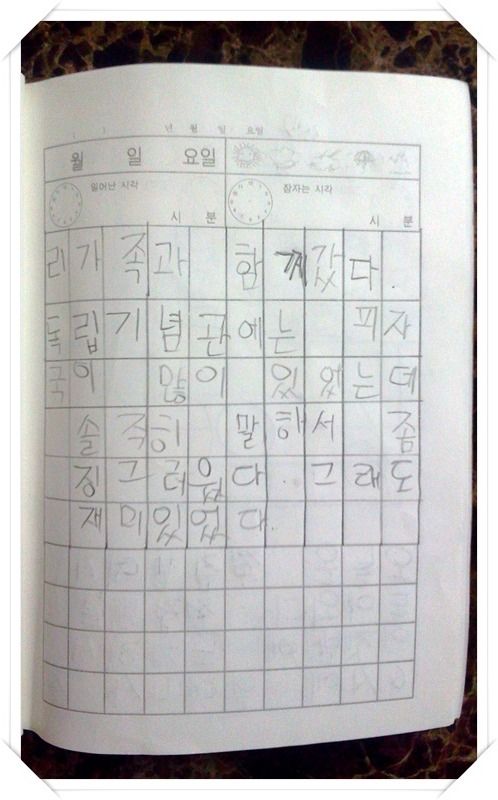 ( ) 년 월 일 요일
월 일 요일
일어난 시각 잠자는 시각
시 분 시 분
리가족과 함께갔다.
독립기념관에는 피자
국이 많이 있었는데
솔직히 말해서 좀
징그러웠다. 그래도
재미있었다.